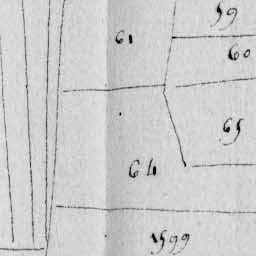 59
61
60
65
64
1599